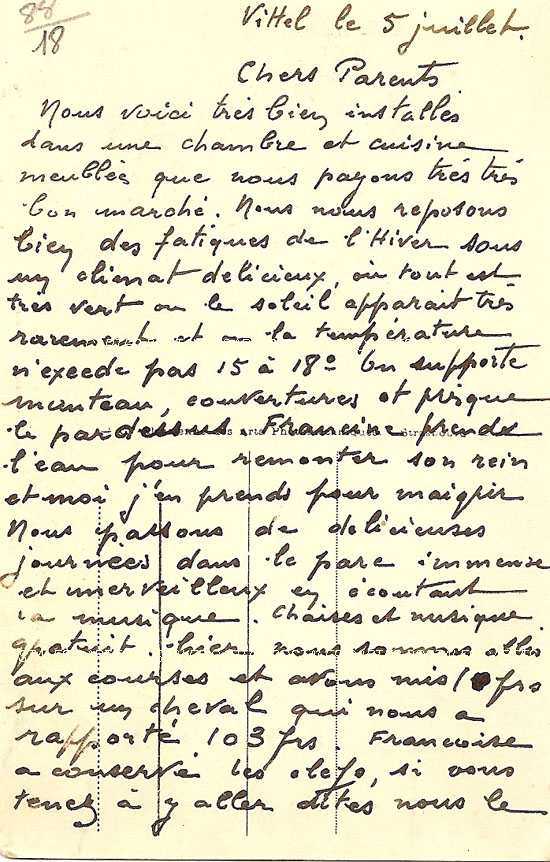 88
18
Vittel le 5 juillet.
Chers Parents
Nous voici très bien installés
dans une chambre et cuisine
meublées que nous payons très très
bon marché. Nous nous reposons
bien des fatigues de l'Hiver sous
un climat delicieux, où tout est
très vert ou le soleil apparait très
rarement et ou la température
n'excede pas 15 à 18º On supporte
manteau, couvertures et presque
le pardessus Francine prends
l'eau pour remonter son rein
et moi j'en prends pour maigrir
Nous passons de delicieuses
journées dans le parc immense
et merveilleux en écoutant
la musique. Chaises et musique
gratuit. hier nous sommes allés
aux courses et avons mis 10 frs
sur un cheval qui nous a
rapporté 103 frs. Francoise
a conservé les clefs, si vous
tenez à y aller dites nous le